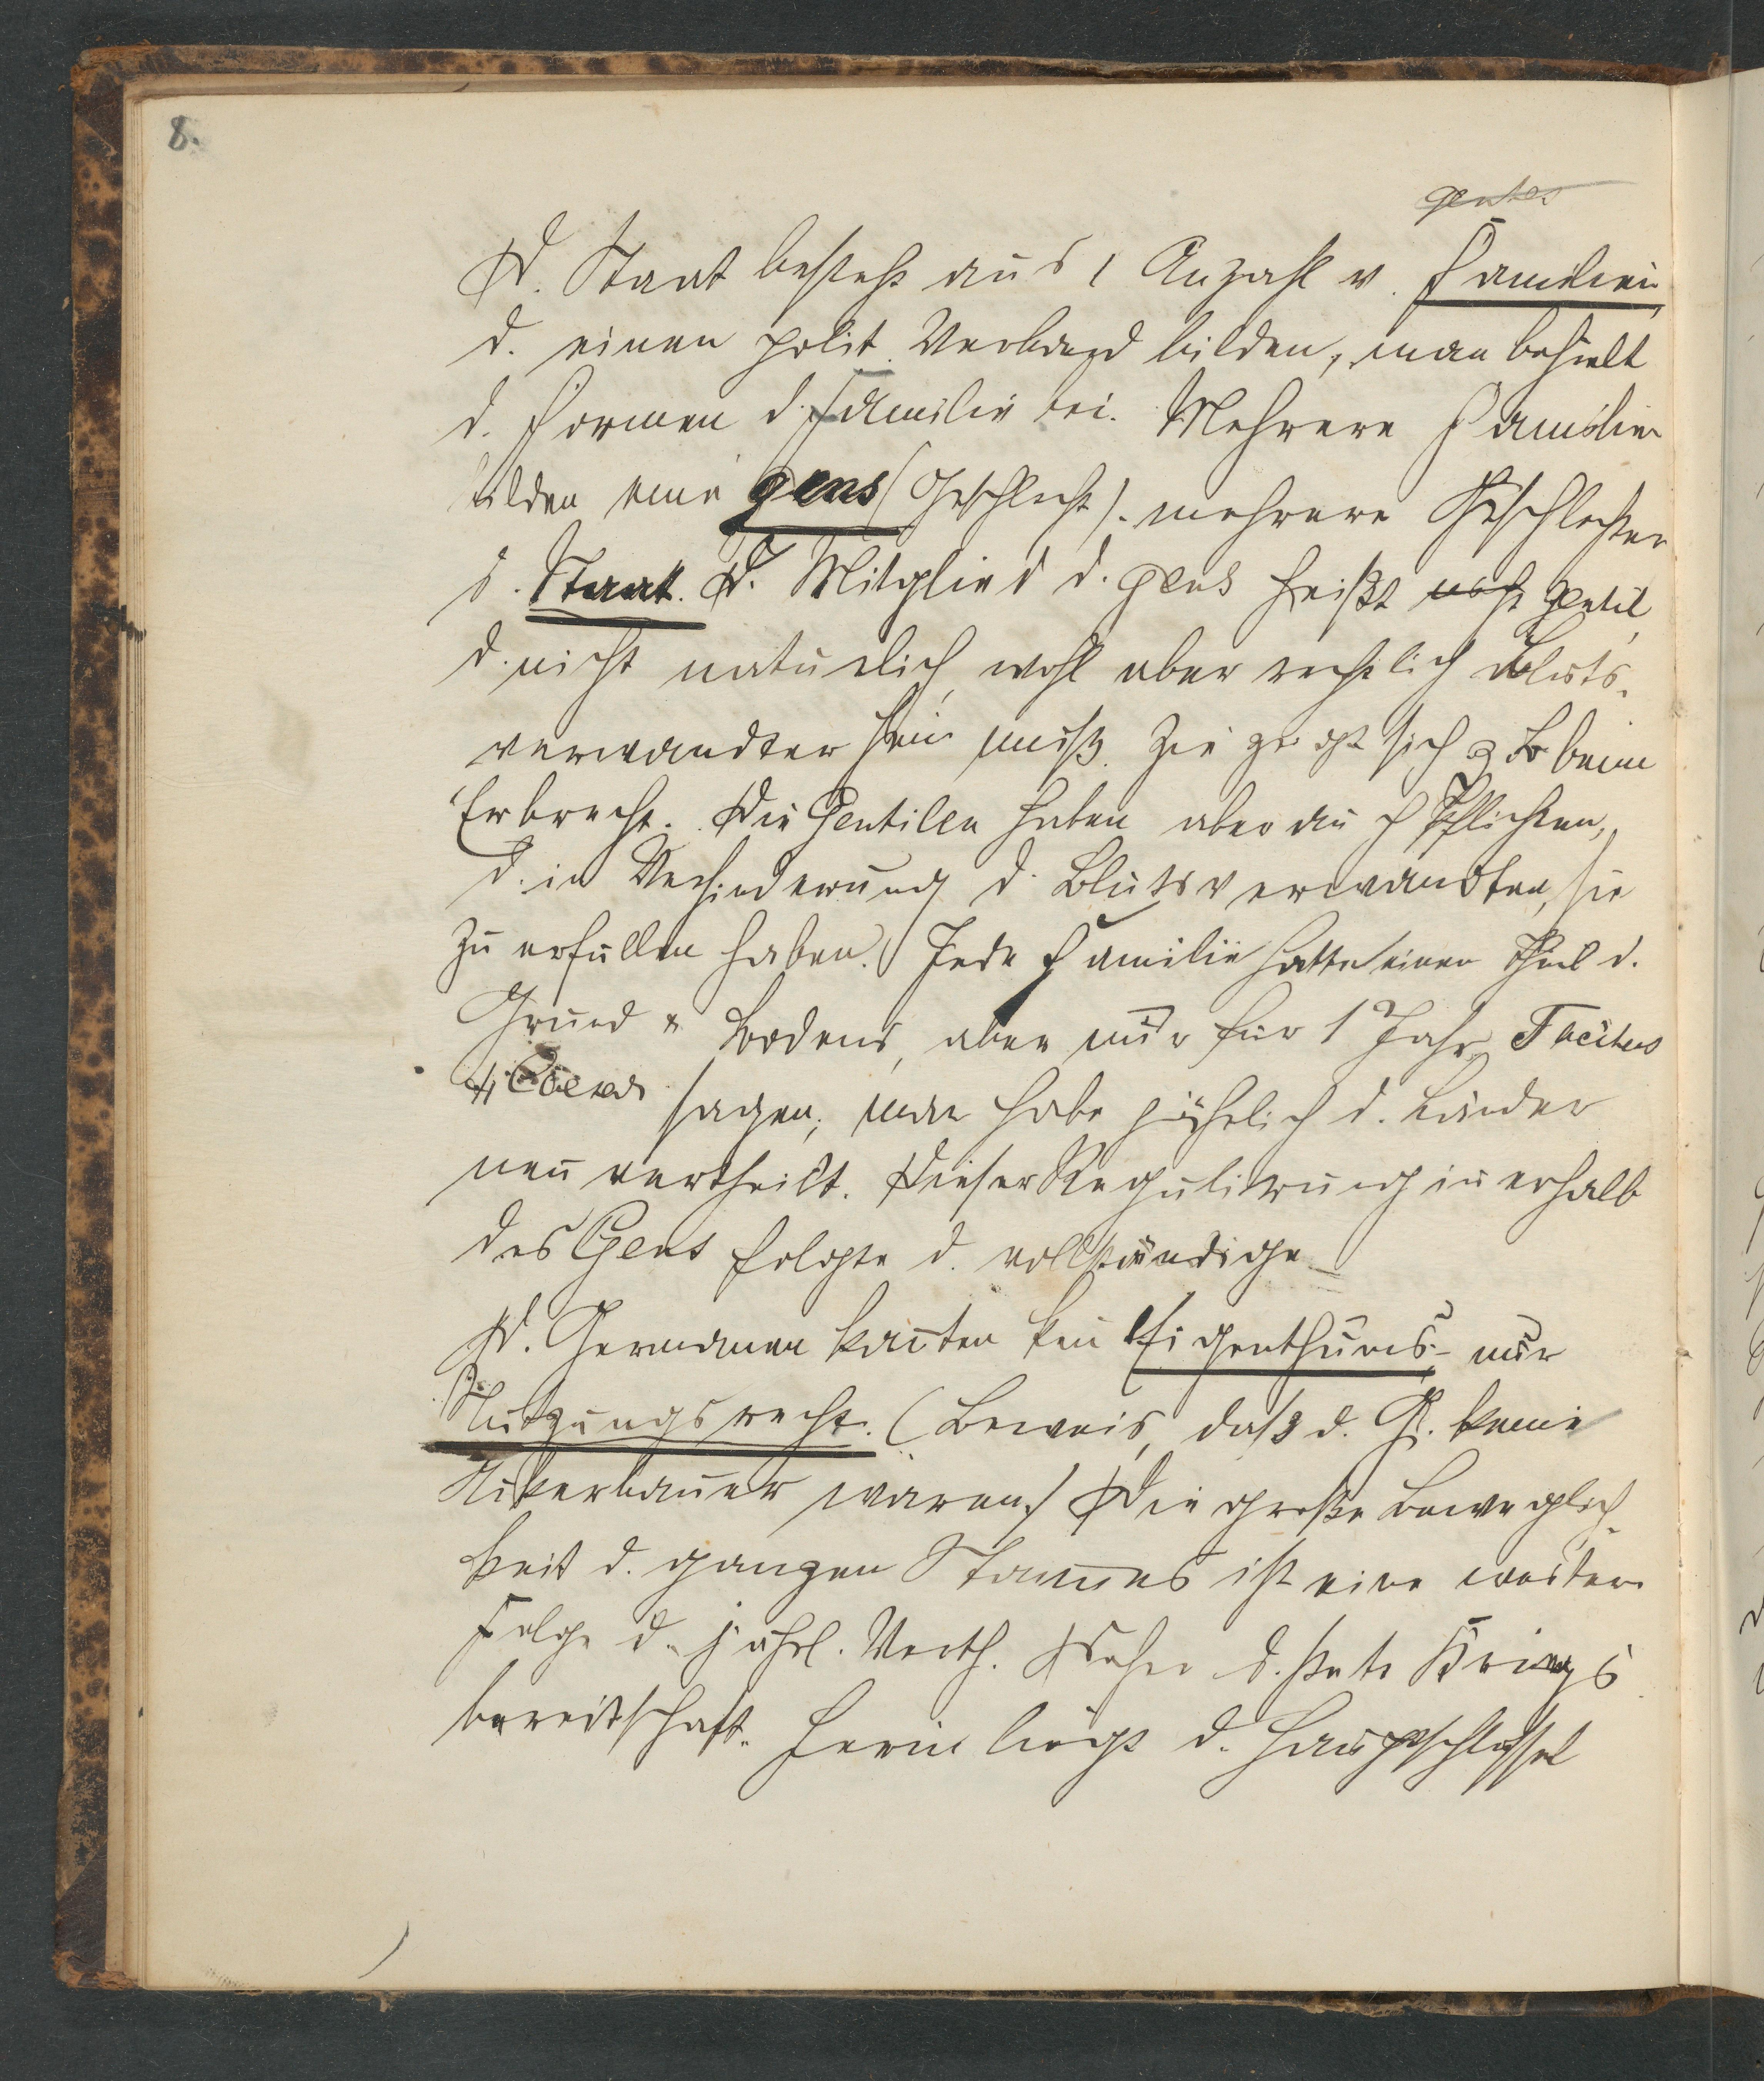 8.
gentes
D. Staat besteht aus 1 Anzahl v. Familien
d. einen polit. Verband bilden, man behielt
d. Formen d. Familie bei. Mehrere Familien
bilden eine gens (Geschlecht). mehrere Geschlechter
d. Staat. D. Mitglied d. gens heißt gentil,
d. nicht natürlich, wohl aber rechtlich Bluts-
verwandter sein muß. zeigt sich z B beim
Erbrecht. Die Gentilen haben aber auch Pflichten,
d. in Verhinderung d. Blutsverwandten, sie
zu erfüllen haben. Jede Familie hatte einen Theil d.
Grund & Bodens, aber nur für 1 Jahr, Tacitus
sagen, man habe jährlich d. Länder
neu vertheilt. Dieser Regulierung innerhalb
des Gens folgte d. vollständige
D. Germanen kannten kein Eigenthums- nur
Nutzungsrecht. (Beweis, daß d. G. keine
Ackerbauer waren.) Die große Beweglich-
keit d. ganzen Stammes ist eine weitere
Folge d. jährl. Verth. Daher d. stete Kriegs
bereitschaft. Herin liegt d. Hauptschlüssel